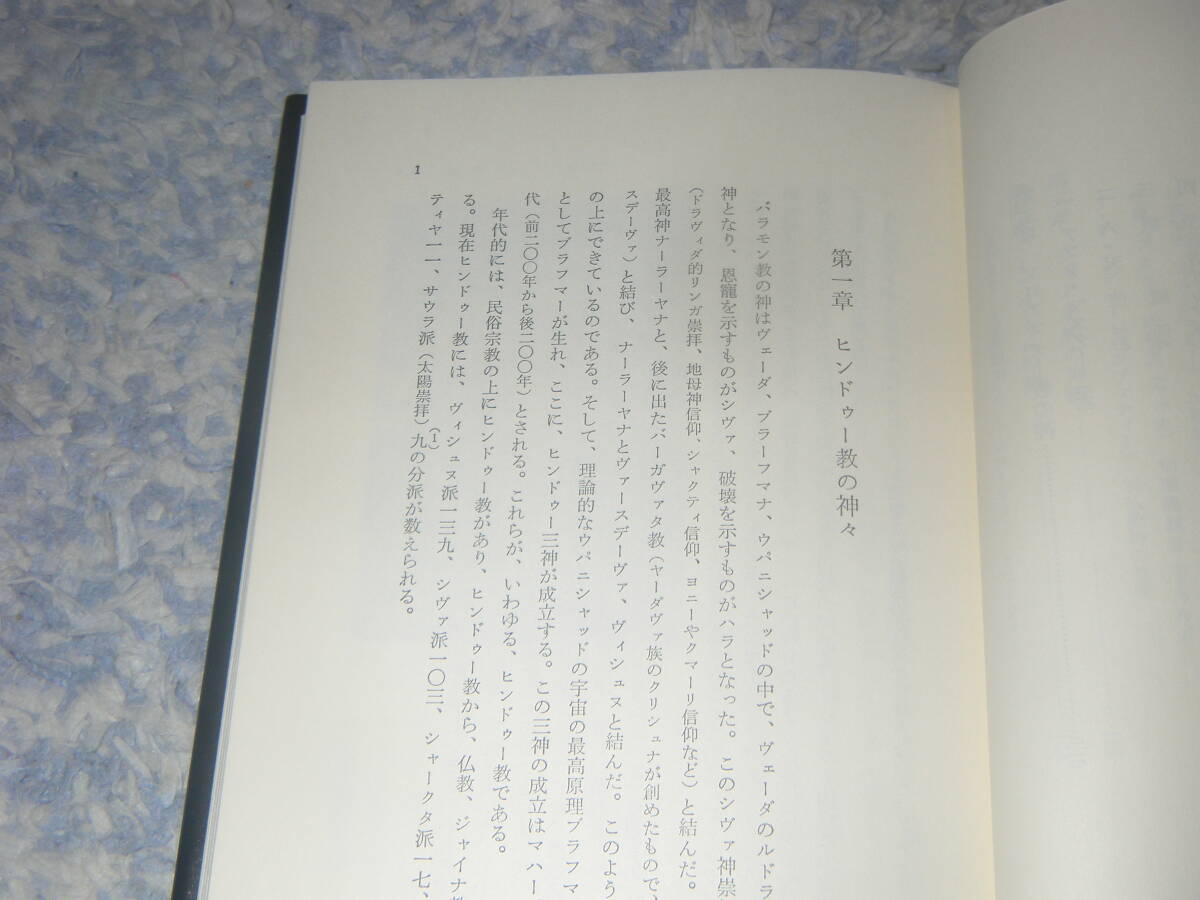 第一章　ヒンドゥー教の神々
バラモン教の神はヴェーダ、ブラーフマナ、ウパニシャッドの中で、ヴェーダのルドラ
神となり、恩寵を示すものがシヴァ、破壊を示すものがハラとなった。このシヴァ神崇
（ドラヴィダ的リンガ崇拝、地母神信仰、シャクティ信仰、ヨニーやクマーリ信仰など）と結んだ。
最高神ナーラーヤナと、後に出たバーガヴァタ教（ヤーダヴァ族のクリシュナが創めたもので、
スデーヴァ）と結び、ナーラーヤナとヴァースデーヴァ、ヴィシュヌと結んだ。このよう
の上にできているのである。そして、理論的なウパニシャッドの宇宙の最高原理ブラフマ
としてブラフマーが生れ、ここに、ヒンドゥー三神が成立する。この三神の成立はマハー
代（前二〇〇年から後二〇〇年）とされる。これらが、いわゆる、ヒンドゥー教である。
年代的には、民俗宗教の上にヒンドゥー教があり、ヒンドゥー教から、仏教、ジャイナ教
る。現在ヒンドゥー教には、ヴィシュヌ派一三九、シヴァ派一〇三、シャークタ派一七、
ティヤ一一、サウラ派（太陽崇拝）九の分派が数えられる。
(1)
1